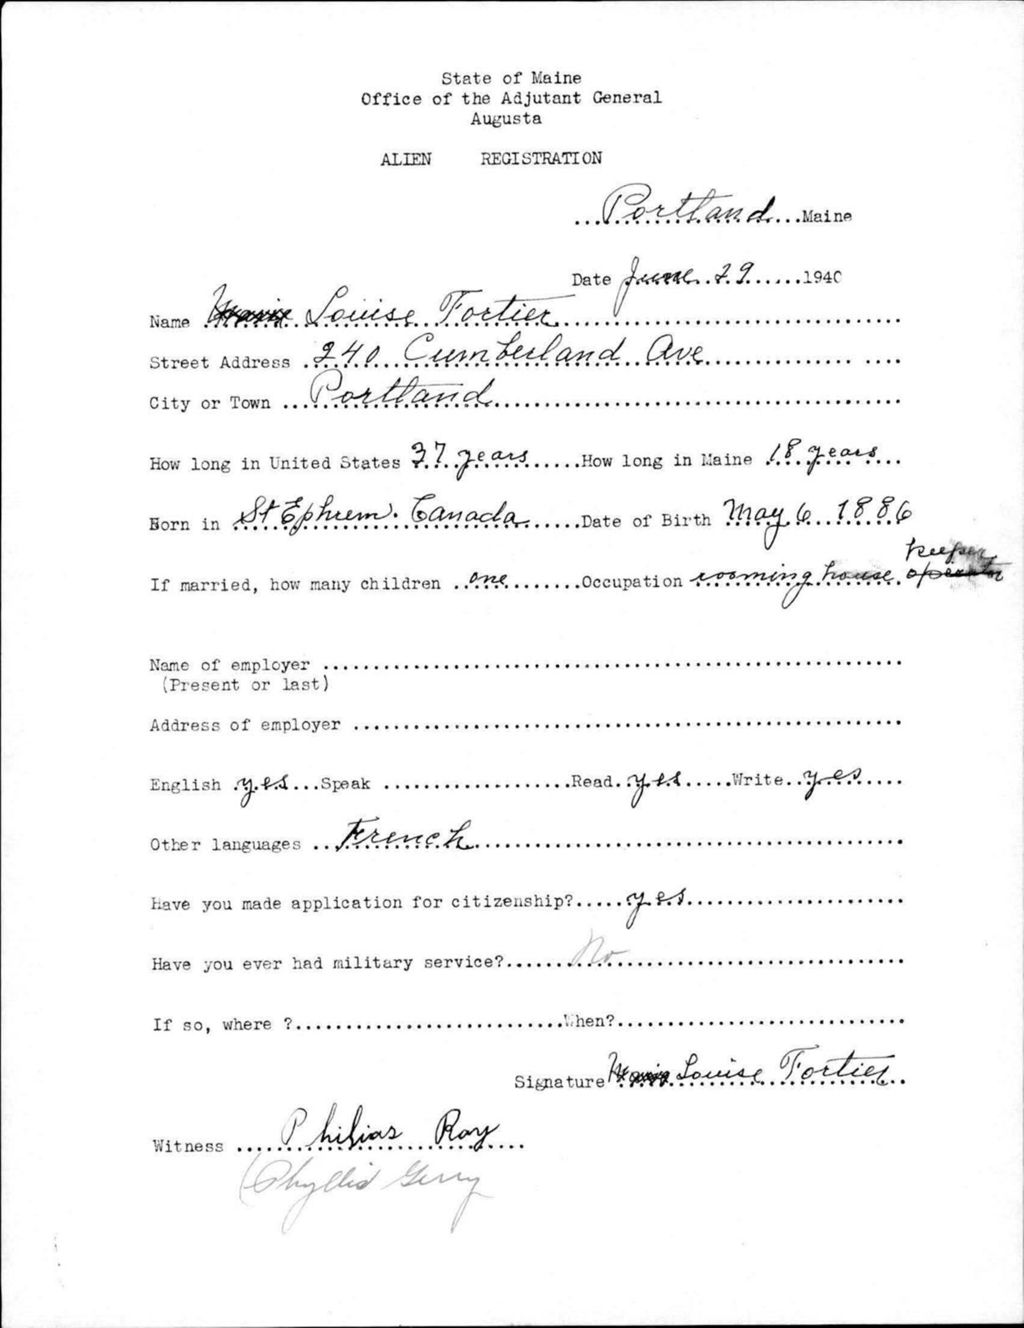 State of Maine
Office of the Adjutant General
Augusta
ALIEN REGISTRATION
...Portland...Maine
Date June 29......1940
Name Marie Louise Fortier
Street Address 240 Cumberland Ave
City or Town Portland
How long in United States 37 years How long in Maine 18 years
Born in St Ephrem. Canada Date of Birth May 6 1886
keeper
If married, how many children one Occupation rooming house operator
Name of employer
(Present or last)
Address of employer
English yes Speak Read yes Write yes
Other languages French
Have you made application for citizenship? yes
Have you ever had military service? No
If so, where ? When?
Signature Marie Louise Fortier
Witness Philias Roy
(Phyllis Gerry